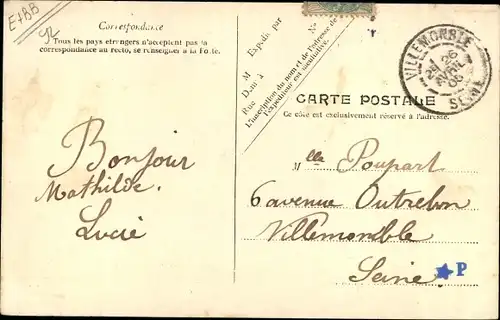 E+BB
92
Correspondance
Tous les pays étrangers n'acceptent pas la
correspondance au recto, se renseigner à la Poste.
M
Expédié par
Dem.t à
Rue
N°
L'inscription du nom et de l'adresse de
l'expéditeur est facultative.
VILLEMOMBLE
26
06
SEINE
CARTE POSTALE
Ce côté est exclusivement réservé à l'adresse.
Bonjour
Mathilde.
Lucie
Mlle Poupart
6 avenue Outrebon
Villemomble
Seine
P